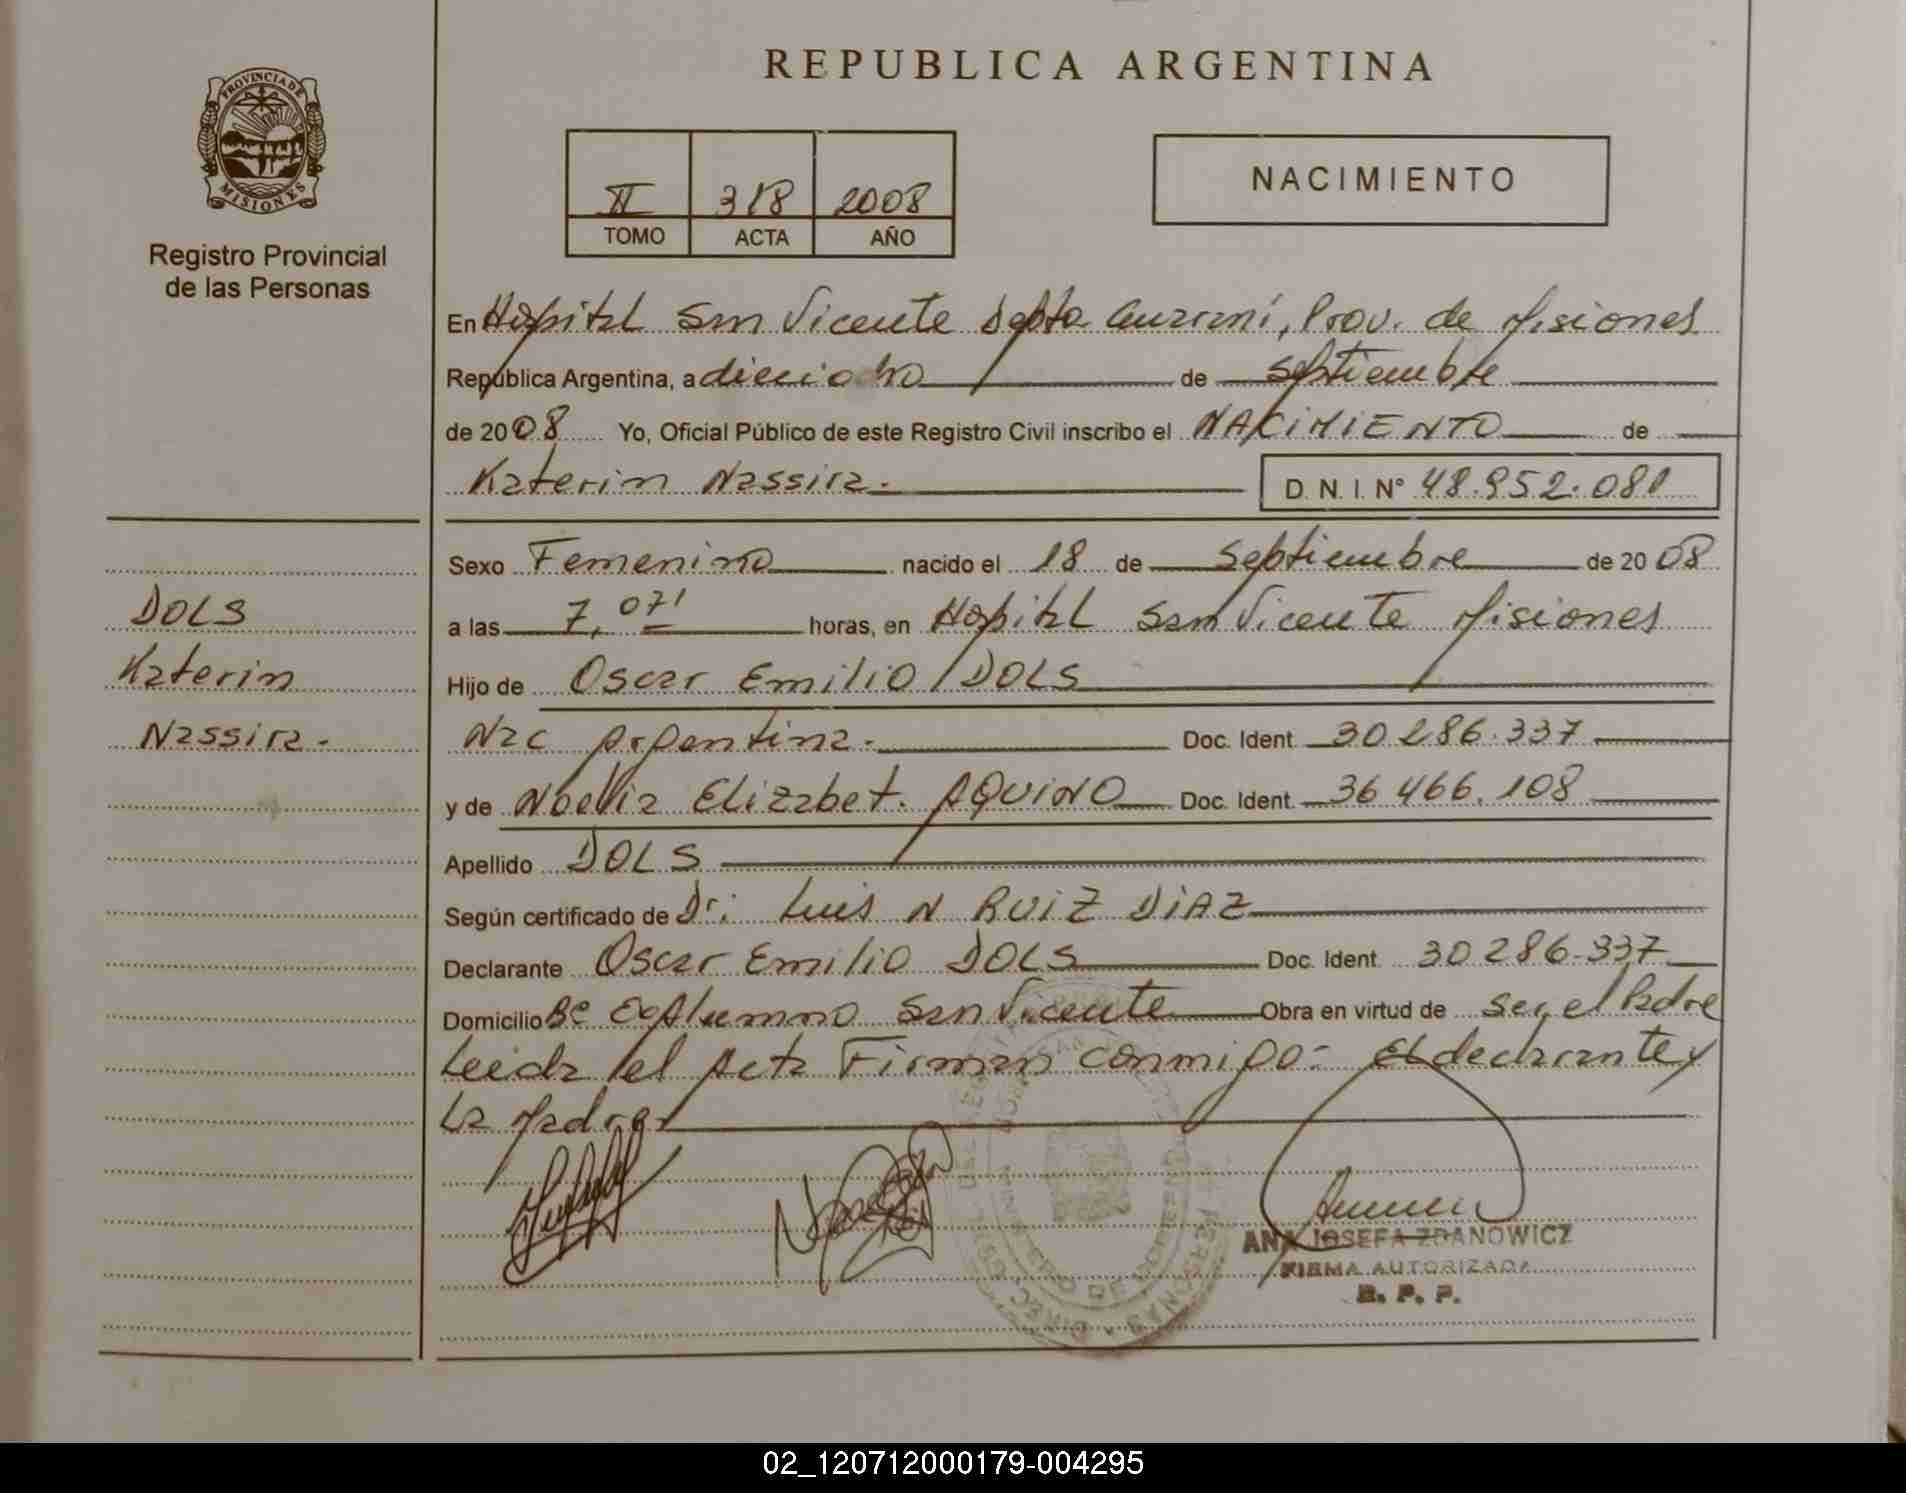 REPUBLICA ARGENTINA
PROVINCIA DE MISIONES
Registro Provincial
de las Personas
II 318 2008
TOMO ACTA AÑO
NACIMIENTO
En Hospital San Vicente Depto Guaraní, Prov. de Misiones
República Argentina, a dieciocho de Septiembre
de 2008 Yo, Oficial Público de este Registro Civil inscribo el NACIMIENTO de
Katerin Nassira.
D. N. I. N° 48.952.081
Sexo Femenino nacido el 18 de Septiembre de 2008
a las 7,07' horas, en Hospital San Vicente Misiones
Hijo de Oscar Emilio DOLS
Nac Argentina. Doc. Ident. 30 286.337
y de Noelia Elizabet. AQUINO Doc. Ident. 36 466.108
Apellido DOLS
Según certificado de Dr: Luis N RUIZ DIAZ
Declarante Oscar Emilio DOLS Doc. Ident. 30 286.337
Domicilio Bº ExAlumno San Vicente Obra en virtud de ser el Padre
Leida el Acta Firman conmigo: El declarante y
La Madre
DOLS
Katerin
Nassira.
ANA JOSEFA ZDANOWICZ
FIRMA AUTORIZADA
R. P. P.
02_120712000179-004295